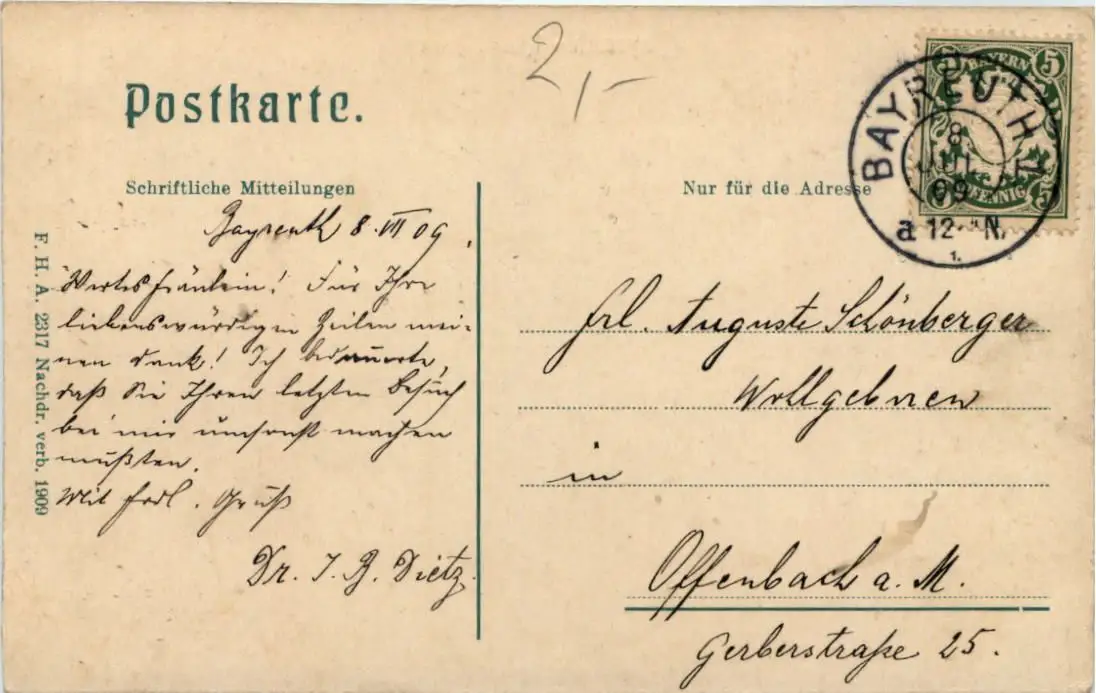 2,-
Postkarte.
Schriftliche Mitteilungen
Nur für die Adresse
BAYERN
5 5
5 5
PFENNIG
BAYREUTH
8
JUL
09
a 12- N.
1.
F. H. A. 2317 Nachdr. verb. 1909
Bayreuth 8. VII 09.
Wertes Fräulein! Für Ihre
liebenswürdigen Zeilen mei-
nen Dank! Ich bedauerte,
daß Sie Ihren letzten Besuch
bei mir umsonst machen
mußten.
Mit frdl. Gruß
Dr. J. B. Dietz.
Frl. Auguste Schönberger
Wohlgeboren
in
Offenbach a. M.
Gerberstraße 25.